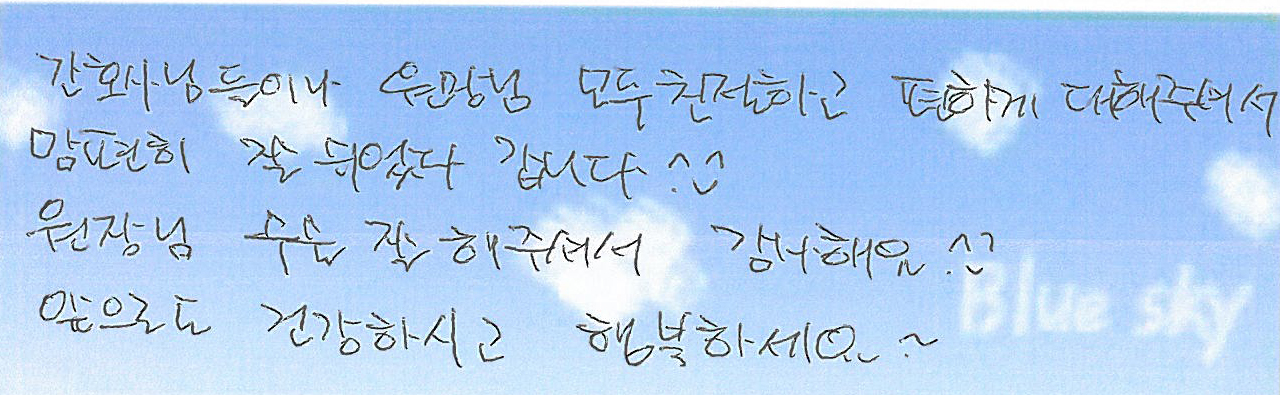 간호사님들이나 원장님 모두 친절하고 편하게 대해주셔서
맘편히 잘 쉬었다 갑니다 ^^
원장님 수술 잘 해주셔서 감사해요 ^^
Blue sky
앞으로도 건강하시고 행복하세요~